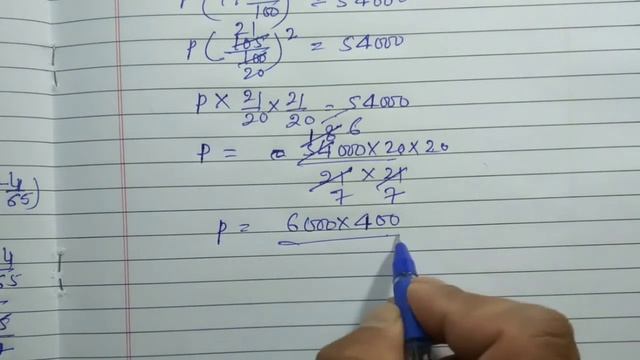 P(1 100) = 54000
21
P(105/100)² = 54000
20
P × 21/20 × 21/20 = 54000
18 6
P = 54000×20×20
21 × 21
7 7
P = 6000×400
4
65)
4
55